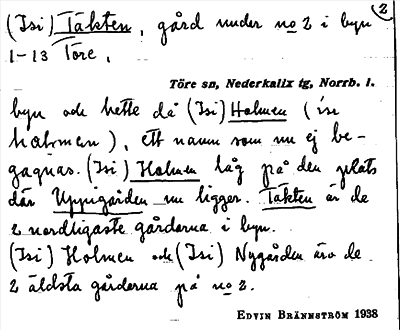 2
(Isi) Täkten, gård under no 2 i byn
1-13 Töre,
Töre sn, Nederkalix tg, Norrb. l.
byn och hette då (Isi) Holmen (isi
hålmen), ett namn som nu ej be-
gagnas. (Isi) Holmen låg på den plats
där Uppigården nu ligger. Täkten är de
2 nordligaste gårdarna i byn.
(Isi) Holmen och (Isi) Nygården äro de
2 äldsta gårdarna på no 2.
EDVIN BRÄNNSTRÖM 1938